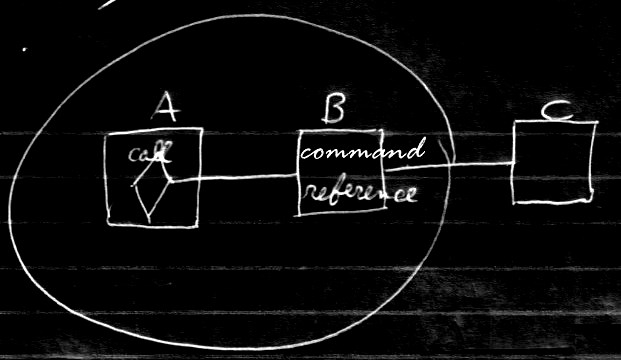 A
B
C
call
command
reference